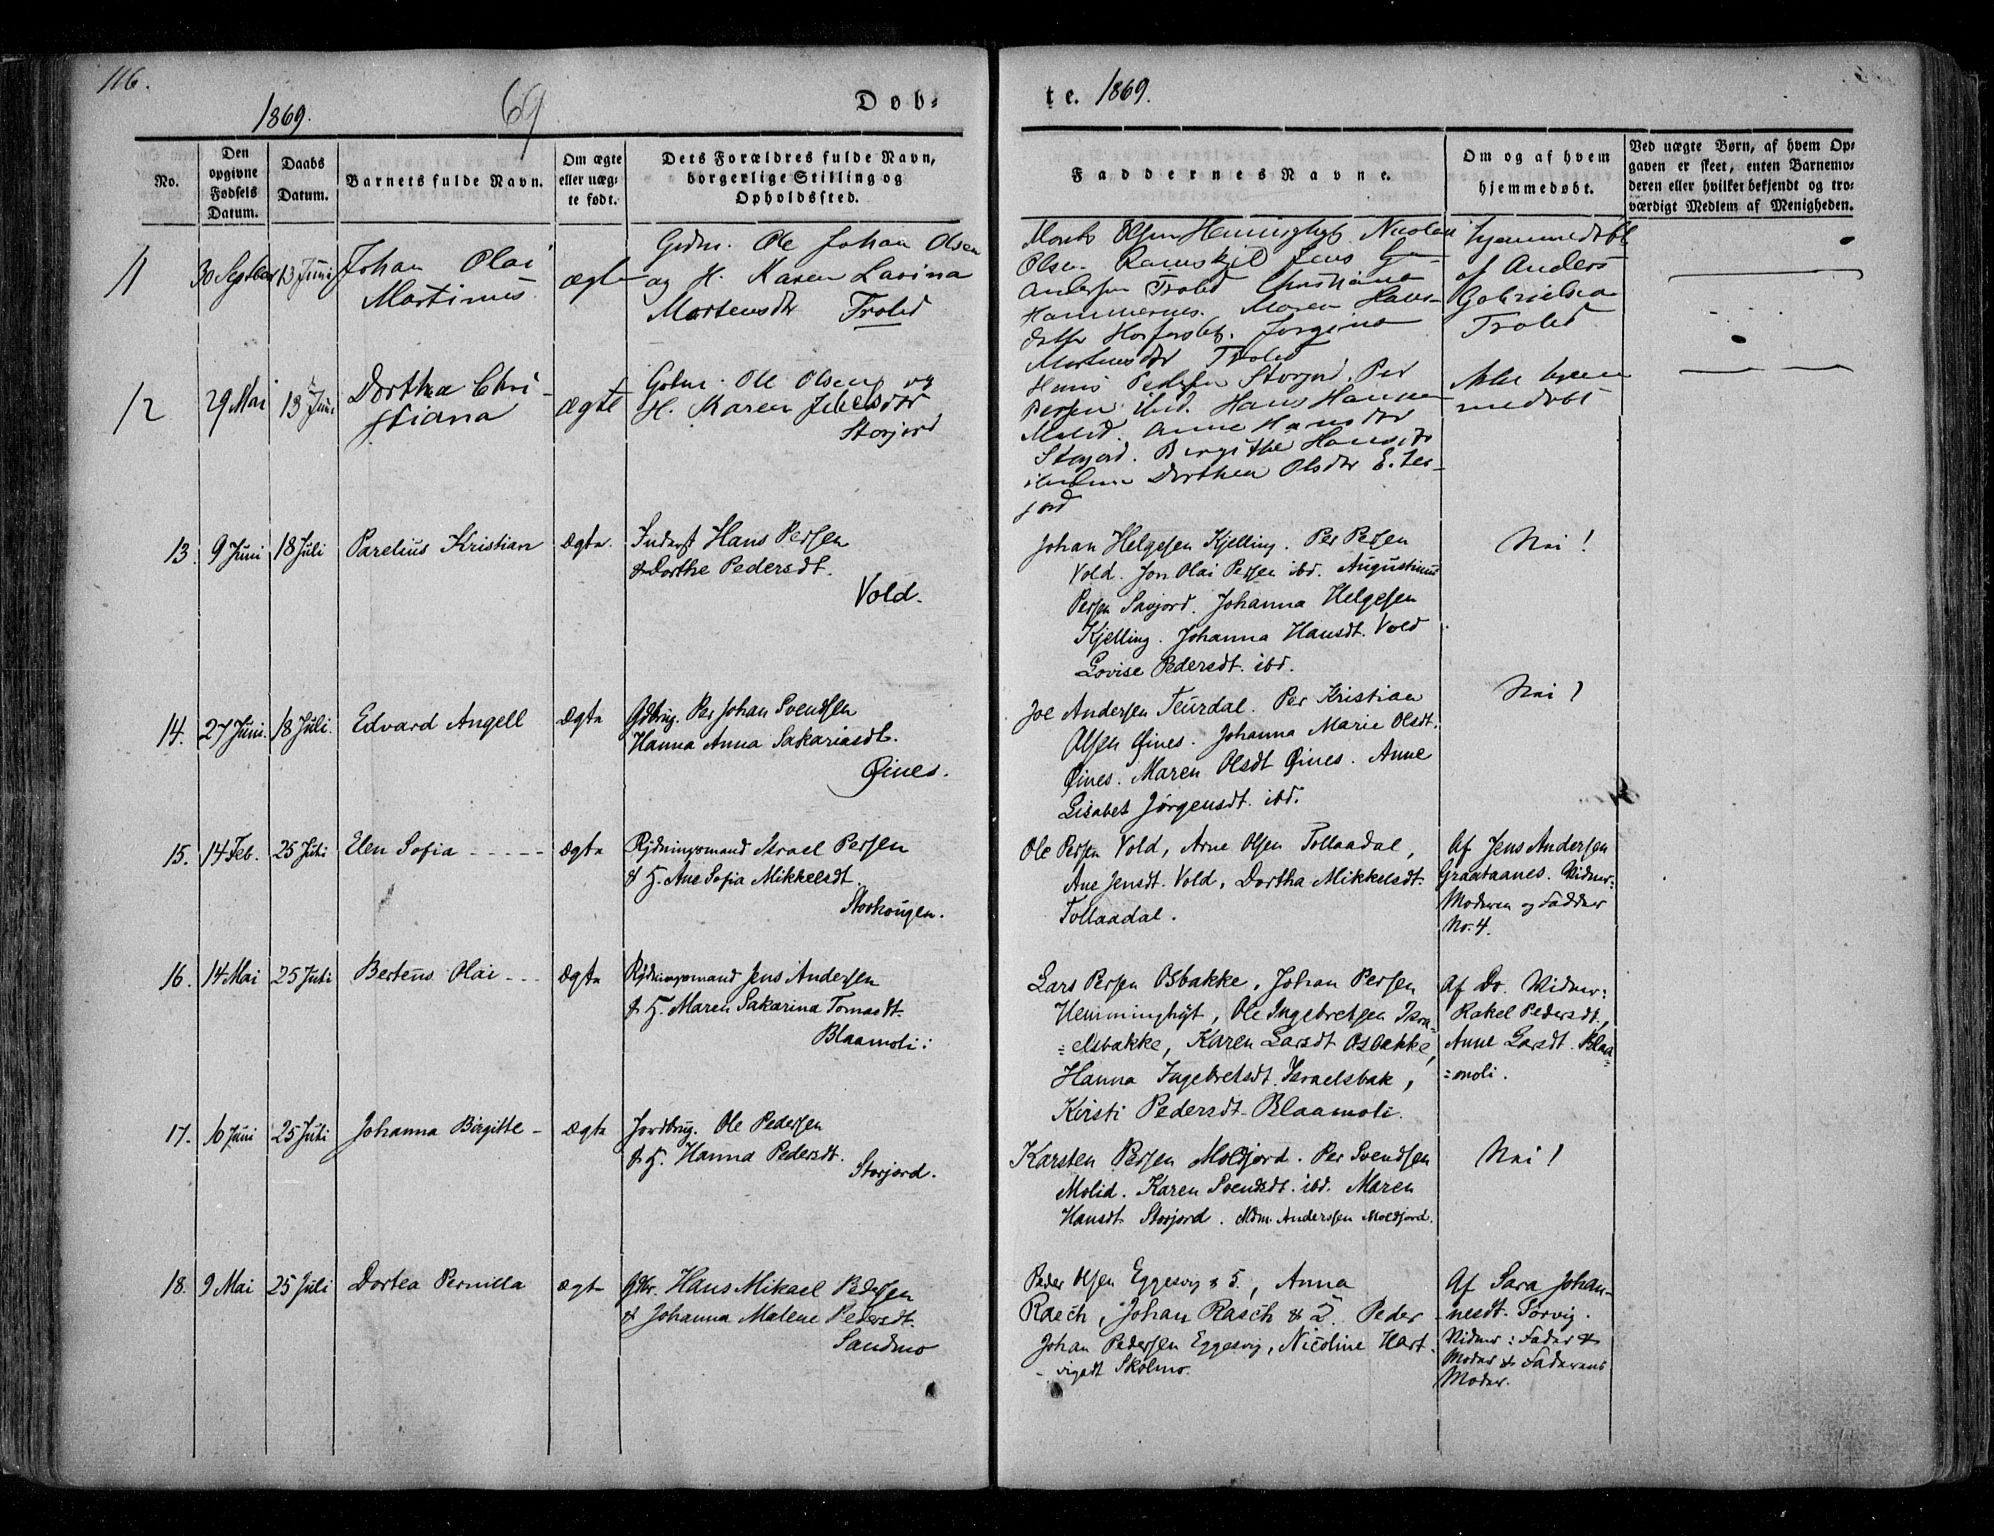 116.
1869.
69
Døb-
te. 1869.
No.
Den opgivne Fødsels Datum.
Daabs Datum.
Barnets fulde Navn.
Om ægte eller uægte født.
Dets Forældres fulde Navn, borgerlige Stilling og Opholdssted.
Faddernes Navne.
Om og af hvem hjemmedøbt.
Ved uægte Børn, af hvem Opgaven er skeet, enten Barnemoderen eller hvilket bekjendt og troværdigt Medlem af Menigheden.
11
13 Juni
Johan Olai
Martinus
ægte
Grdm. Ole Johan Olsen
og H. Karen Lavina
Mortensdtr Trolid
Olsen Hemminghyt. Nicolai
Olsen Jens
Andersen Trolid Christiane
Hammernes. Maren Hans-
datter Jørgine
Trolid
hjemmedøbt
af Anders
Gabrielsen
Trolid
12
29 Mai
13 Juni
Dorthea Chri-
stiana
ægte
Grdm. Ole Olsen og
H. Karen
Storjord
Hans Pedersen Storjord. Per
Persen ibid. Hans Hansen
Molid. Anne Hansdtr
Storjord. Birgithe Hansdtr
Dorthea Olsdtr
jord
Ikke hjem
medøbt
13.
9 Juni
18 Juli
Parelius Kristian
Ægte.
Inderst Hans Persen
& Dorthe Pedersdt.
Vold.
Johan Helgesen Kjelling. Per Persen
Vold. Jon Olai Persen ibd. Augustinus
Persen Savjord. Johanna Helgesen
Kjelling. Johanna Hansdt. Vold
Lovise Pedersdt. ibd.
Nei!
14.
27 Juni.
18 Juli.
Edvard Angell
Ægte
Gdbrug. Per Johan Svendsen
Hanna Anna Sakariasdt.
Øines.
Joe Andersen Teurdal. Per Kristian
Olsen Øines. Johanna Marie Olsdt.
Øines. Maren Olsdt Øines. Anne
Lisabet Jørgensdt. ibd.
Nei!
15.
14 Feb.
25 Juli
Elen Sofia - - - - -
Ægte
Rydningsmand Israel Persen
& H. Ane Sofia Mikkelsdt.
Storhougen.
Ole Persen Vold, Arne Olsen Tollaadal,
Ane Jensdt. Vold, Dortha Mikkelsdt.
Tollaadal.
Af Jens Andersen
Graataanes. Vidner:
Moderen og Fadder
No. 4.
16.
14 Mai
25 Juli
Bertens Olai - - -
Ægte
Rydningsmand Jens Andersen
& H. Maren Sakarina Tomasdt.
Blaamoli:
Lars Persen Osbakke, Johan Persen
Hemminghyt, Ole Ingebretsen Isra-
=elsbakke, Karen Larsdt Osbakke,
Hanna Ingebretsdt. Israelsbak,
Kirsti Pedersdt. Blaamoli.
Af Do. Vidner:
Rakel Pedersdt,
Anne Larsdt. Blaa=
=moli.
17.
6 Juni
25 Juli
Johanna Birgitte -
Ægte
Jordbrug. Ole Pedersen
& H. Hanna Pedersdt.
Storjord.
Karsten Persen Moldjord. Per Svendsen
Molid. Karen Svendsdt. ibd. Maren
Hansdt Storjord. Mdm. Anderssen Moldjord.
Nei!
18.
9 Mai
25 Juli
Dortea Pernilla
ægte
Gdbr. Hans Mikael Pedersen
& Johanna Malene Pedersdt.
Sandmo
Peder Olsen Eggesvig & 5, Anna
Rasch, Johan Rasch & 2. Peder
Johan Pedersen Eggesvig, Nicoline Hart-
-vigsdt Skolmo.
Af Sara Johan-
nesdt. Sørvig.
Vidner: Fader &
Moder & Faderens
Moder.